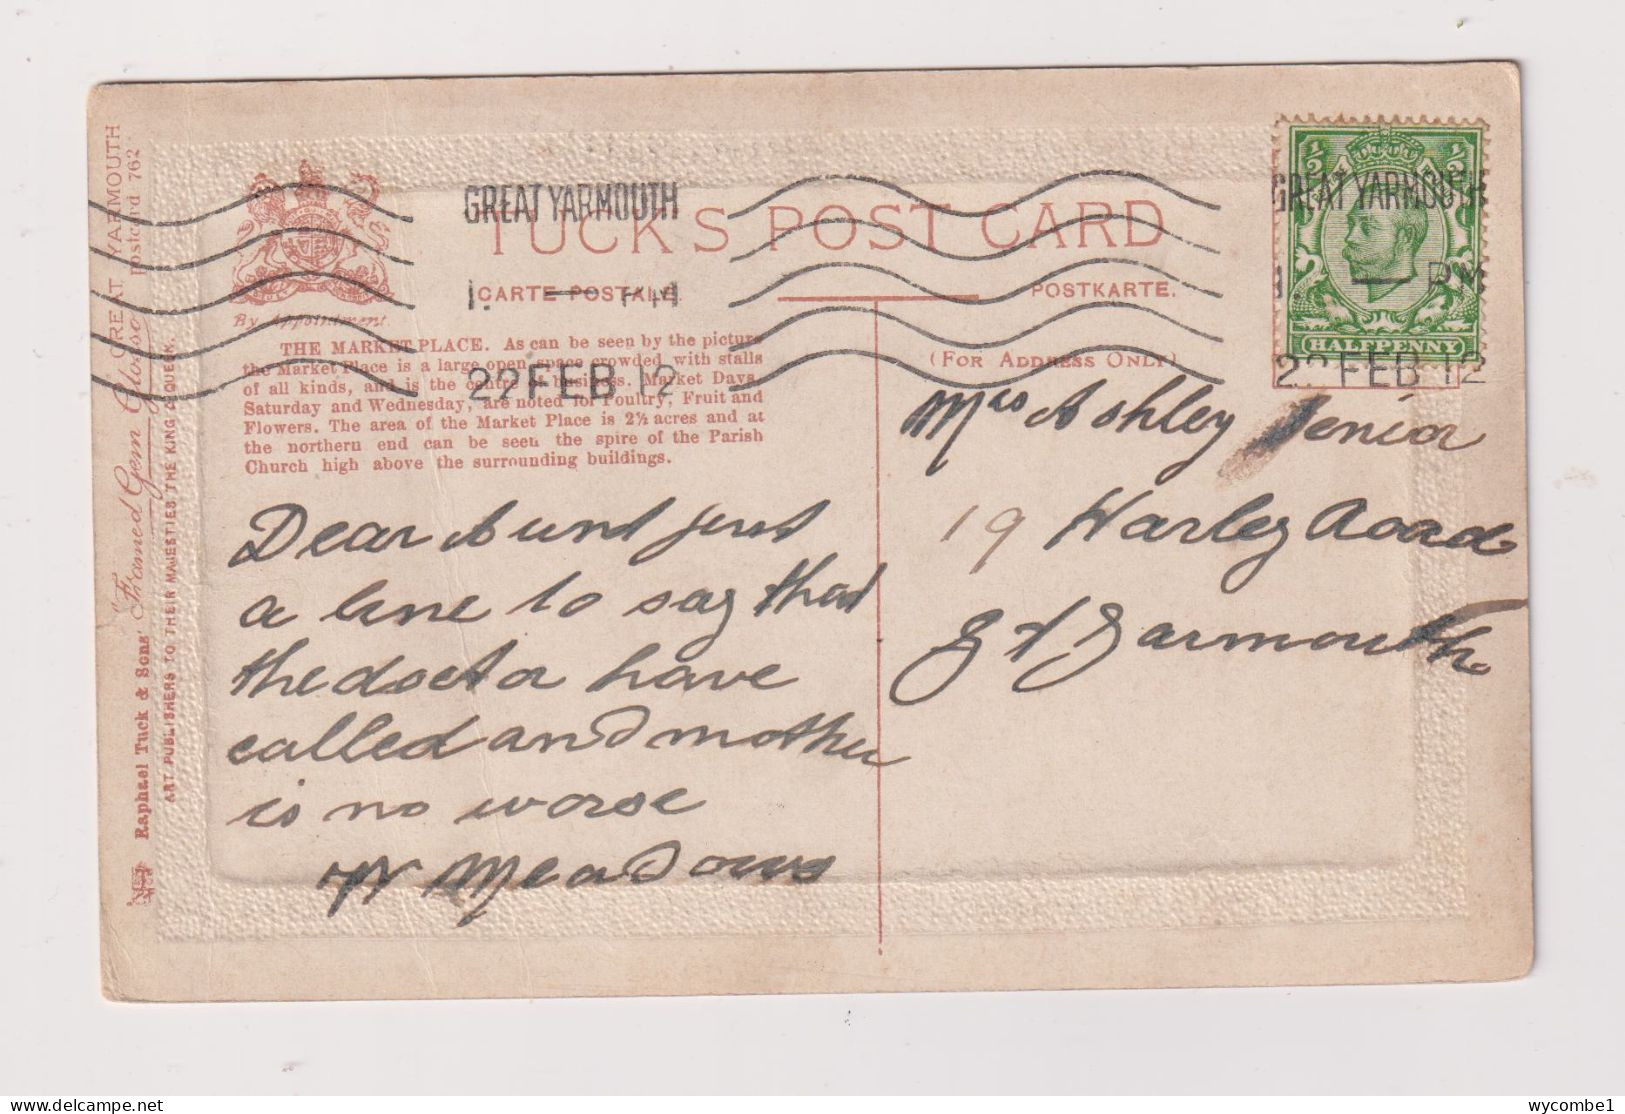 GREAT YARMOUTH
1. — PM
22 FEB 12
GREAT YARMOUTH
1. — PM
22 FEB 12
½ ½
HALFPENNY
TUCK'S POST CARD
CARTE POSTALE.
POSTKARTE.
By Appointment.
(FOR ADDRESS ONLY)
THE MARKET PLACE. As can be seen by the picture
the Market Place is a large open space crowded with stalls
of all kinds, and is the centre of business. Market Days,
Saturday and Wednesday, are noted for Poultry, Fruit and
Flowers. The area of the Market Place is 2½ acres and at
the northern end can be seen the spire of the Parish
Church high above the surrounding buildings.
Dear Aunt just
a line to say that
the doctor have
called and mother
is no worse
W Meadows
Mrs Ashley Senior
19 Harley Road
Gt Yarmouth
Raphael Tuck & Sons' "Framed Gem Glosso" GREAT YARMOUTH
postcard 762
ART PUBLISHERS TO THEIR MAJESTIES THE KING & QUEEN.
wycombe1